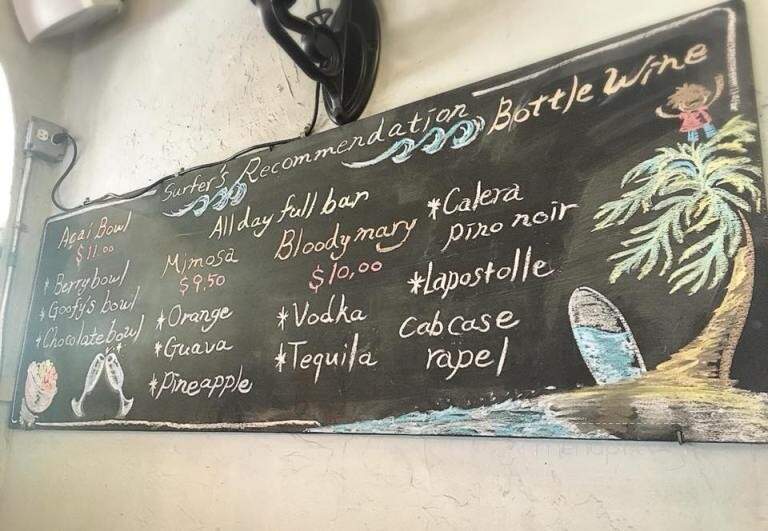 Surfer's Recommendation
All day full bar
Açaí Bowl
$11.00
* Berry bowl
* Goofy's bowl
* Chocolate bowl
Mimosa
$9.50
*Orange
*Guava
*Pineapple
Bloody mary
$10,00
*Vodka
*Tequila
Bottle Wine
*Calera
pino noir
*Lapostolle
Cab case
rapel